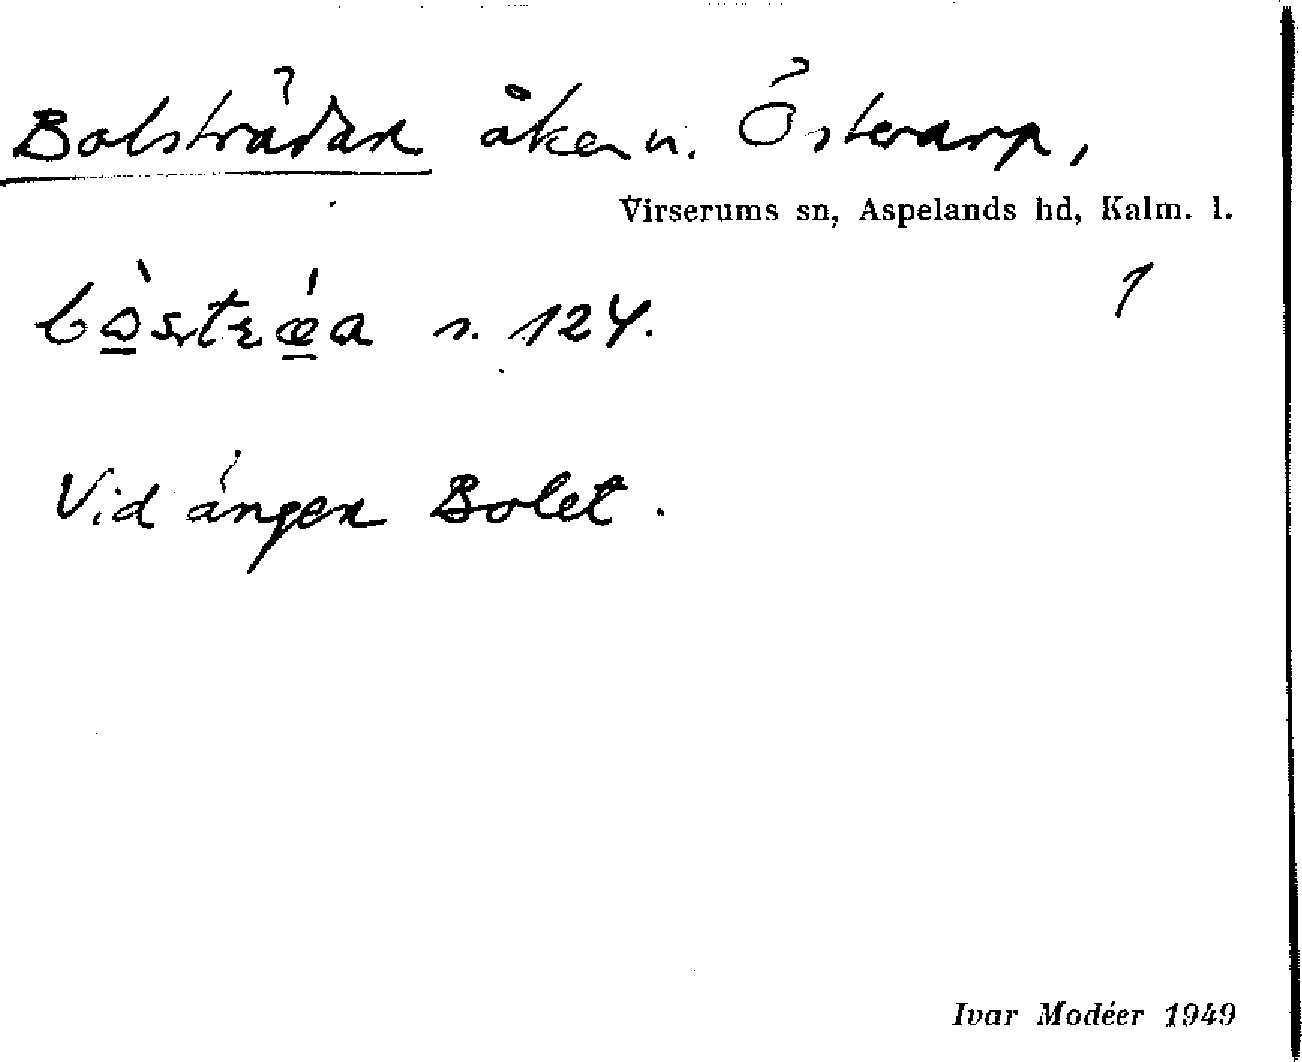 Bolsträdan åker n. Österarp,
Virserums sn, Aspelands hd, Kalm. l.
1
s. 124.
Vid ängen Bolet.
Ivar Modéer 1949